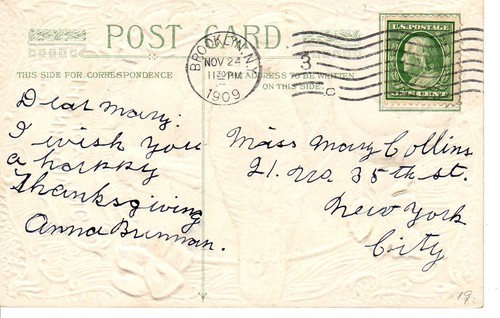 POST CARD.
THIS SIDE FOR CORRESPONDENCE
ADDRESS TO BE WRITTEN
ON THIS SIDE
BROOKLYN, N.Y.
NOV 24
11 30 PM
1909
3
C
U.S. POSTAGE
ONE CENT
Dear Mary:
I wish you
a happy
Thanksgiving
Anna Brennan.
Miss Mary Collins
21. W. 35th st.
New York
City
19.